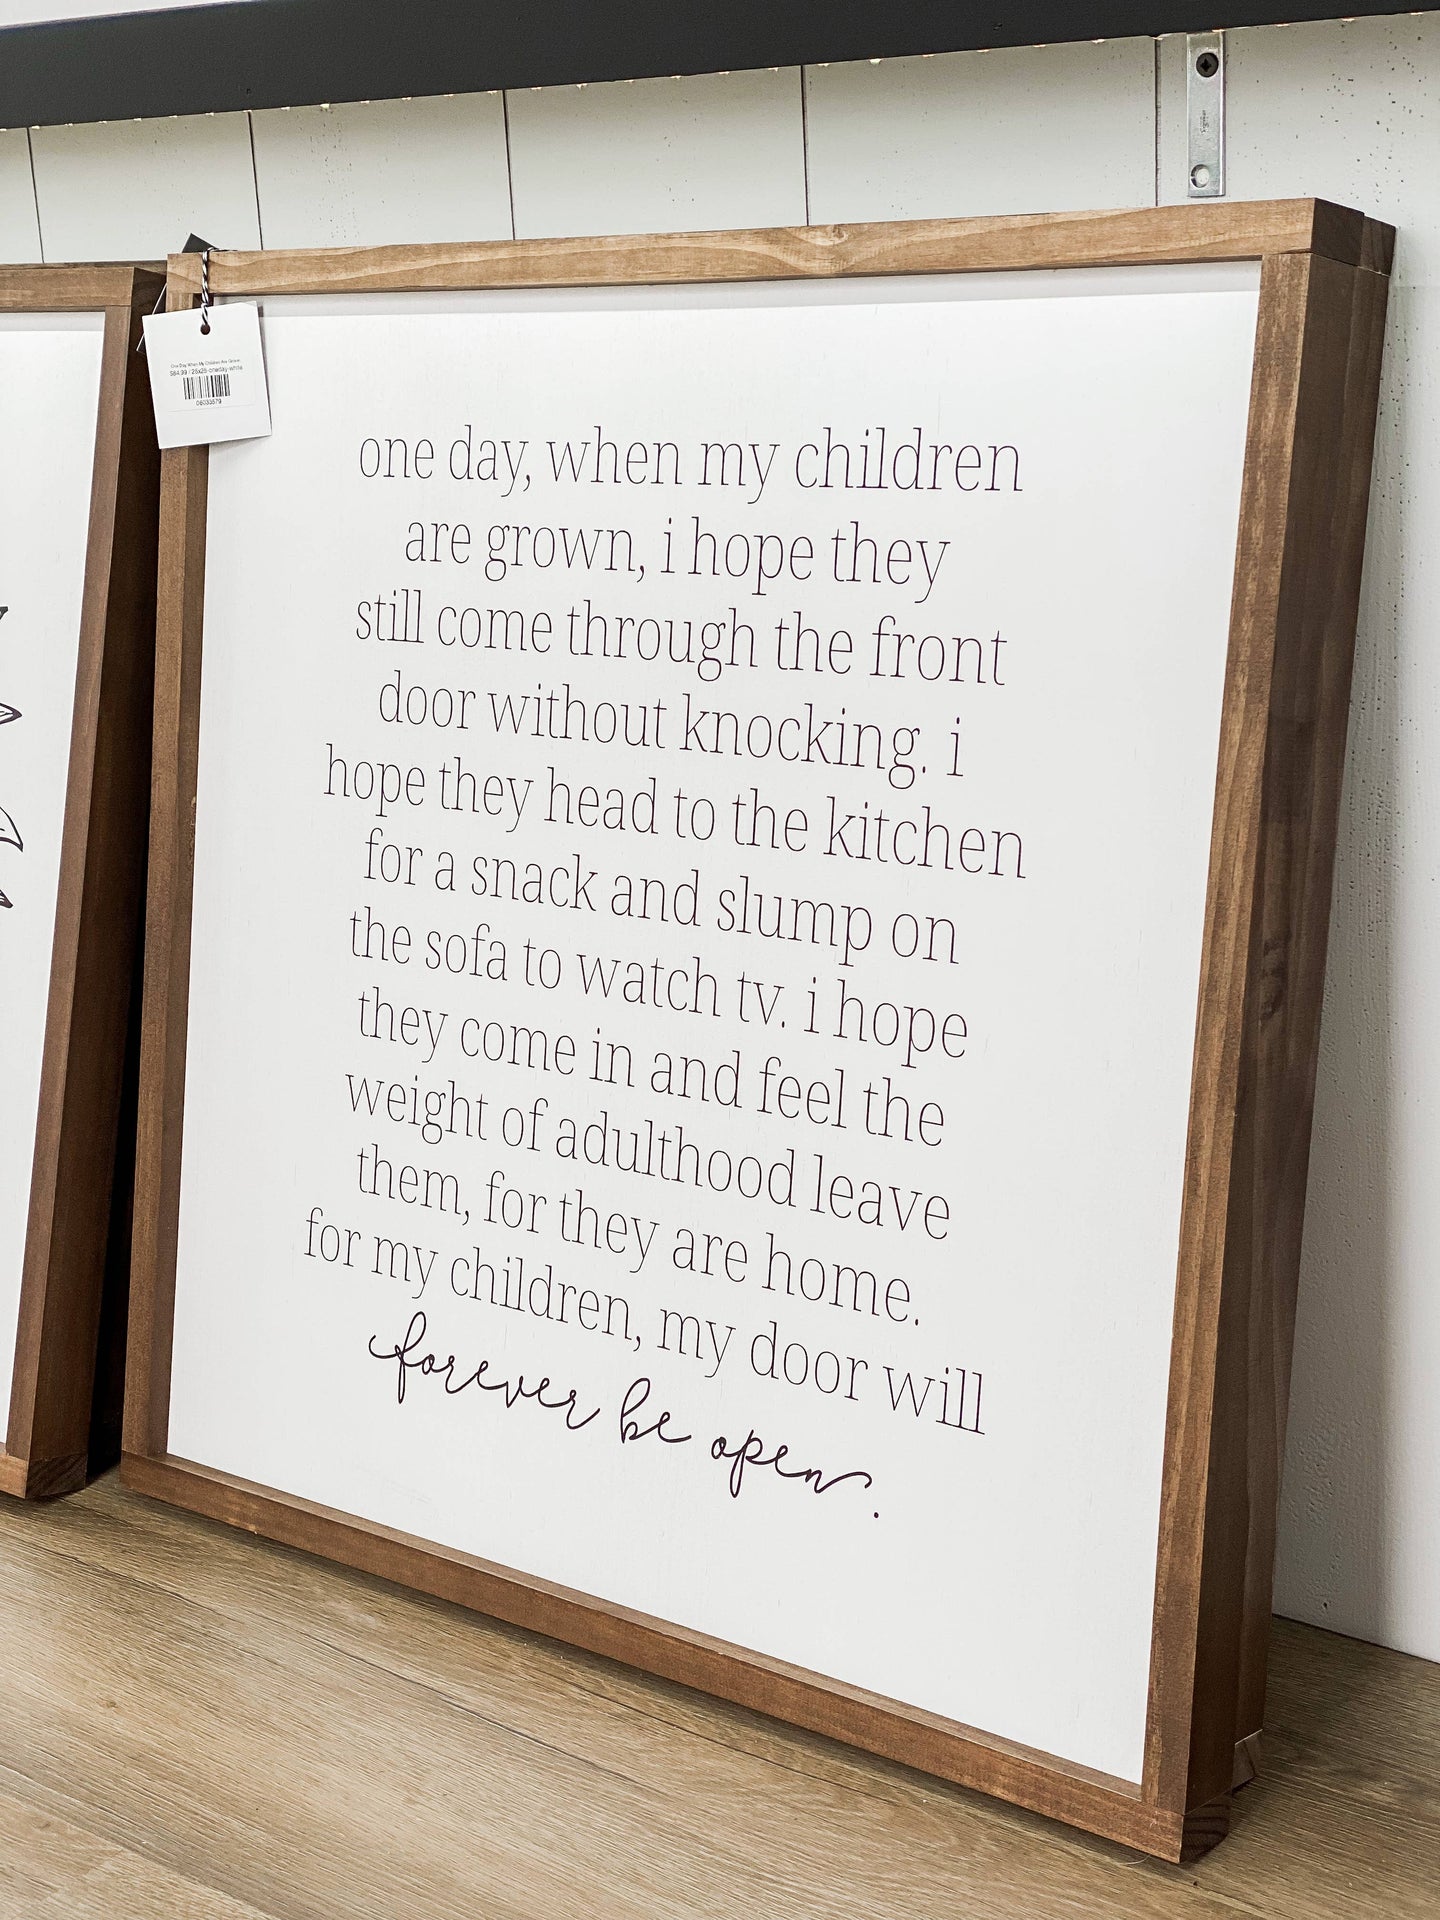 One Day When My Children Are Grown,
$84.99 | 26x26-oneday-white
06033579
one day, when my children
are grown, i hope they
still come through the front
door without knocking. i
hope they head to the kitchen
for a snack and slump on
the sofa to watch tv. i hope
they come in and feel the
weight of adulthood leave
them, for they are home.
for my children, my door will
forever be open.